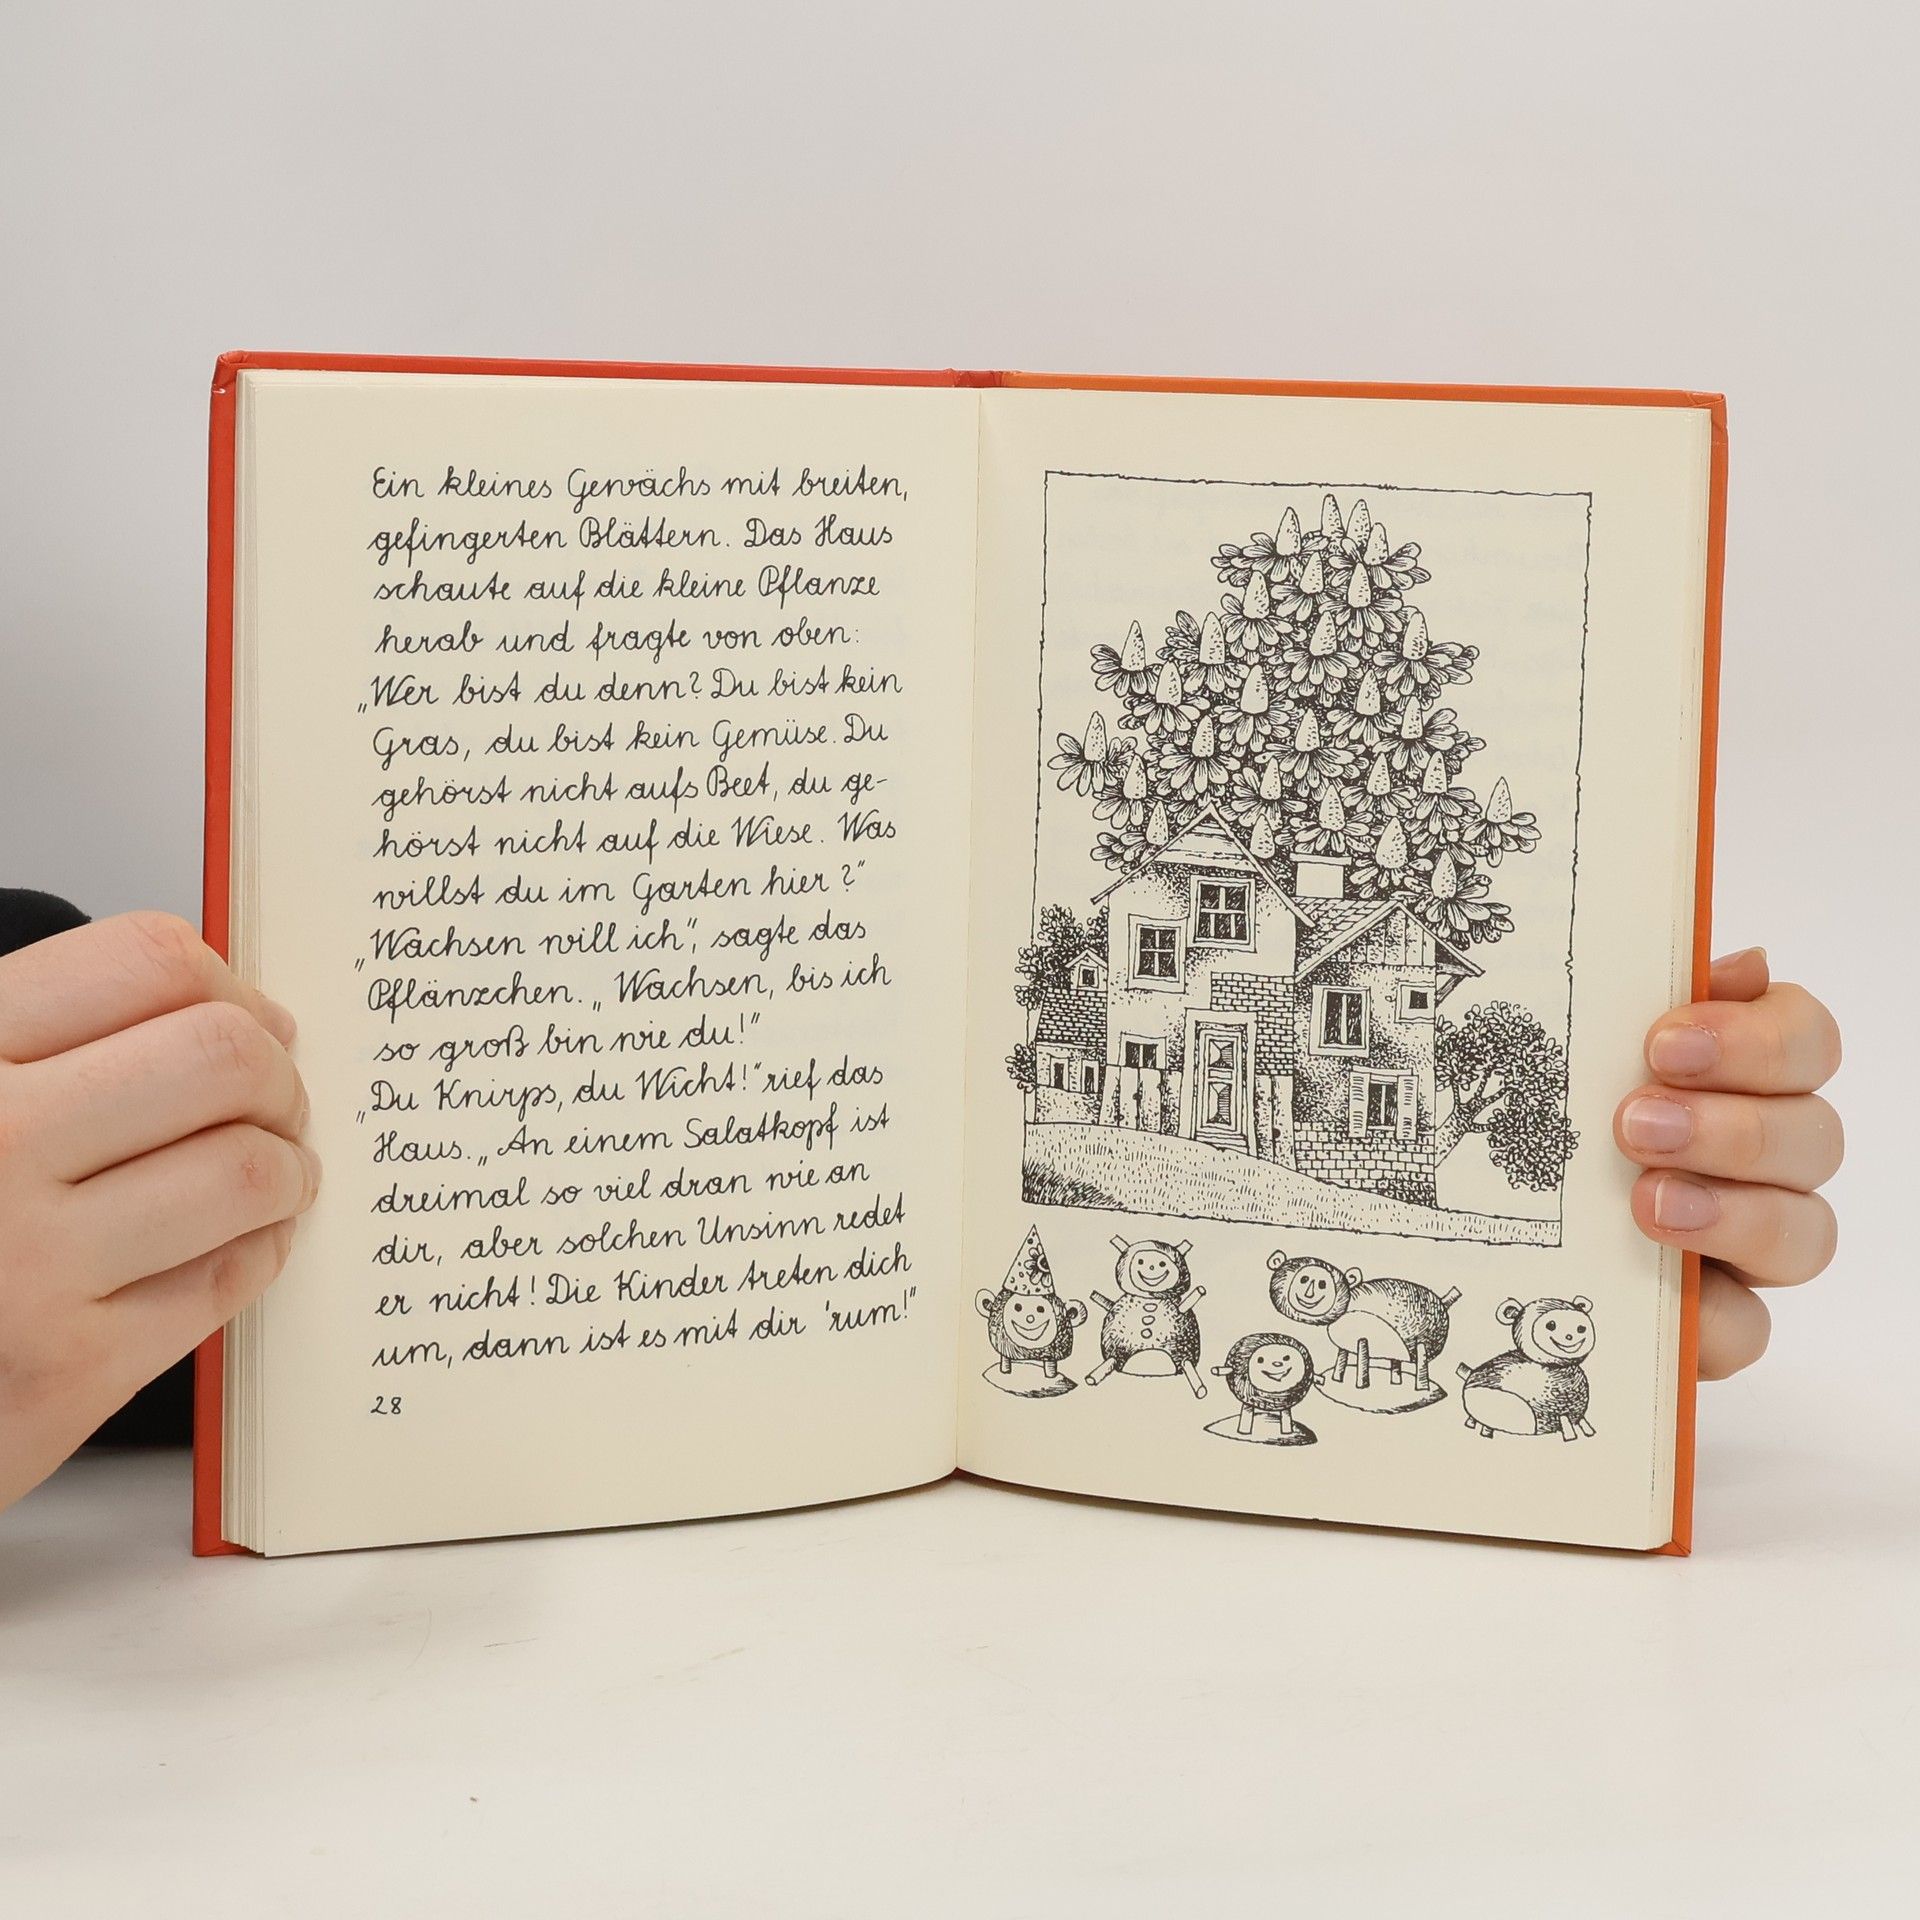 Ein kleines Gewächs mit breiten,
gefingerten Blättern. Das Haus
schaute auf die kleine Pflanze
herab und fragte von oben:
„Wer bist du denn? Du bist kein
Gras, du bist kein Gemüse. Du
gehörst nicht aufs Beet, du ge-
hörst nicht auf die Wiese. Was
willst du im Garten hier?“
„Wachsen will ich“, sagte das
Pflänzchen. „Wachsen, bis ich
so groß bin wie du!“
„Du Knirps, du Wicht!“ rief das
Haus. „An einem Salatkopf ist
dreimal so viel dran wie an
dir, aber solchen Unsinn redet
er nicht! Die Kinder treten dich
um, dann ist es mit dir 'rum!“
28